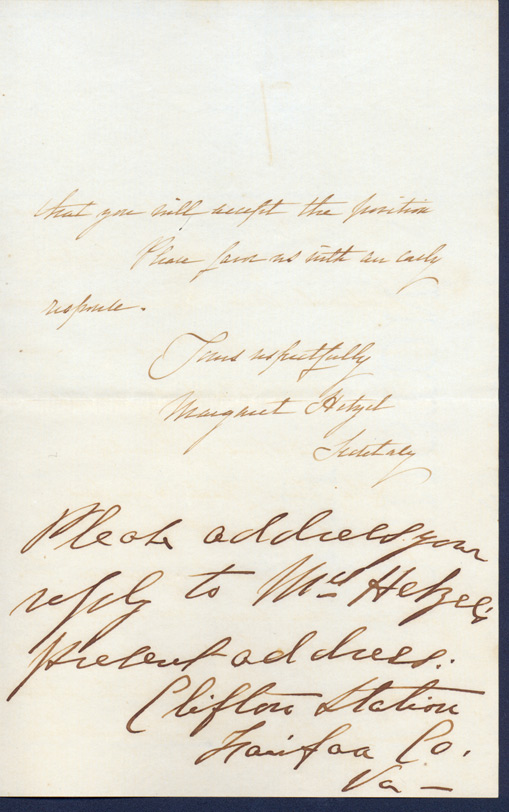 that you will accept the position
Please favor us with an early
response.
Yours respectfully
Margaret Hetzel
Secretary
Please address your
reply to Mrs Hetzel's
present address.
Clifton Station
Fairfax Co.
Va —